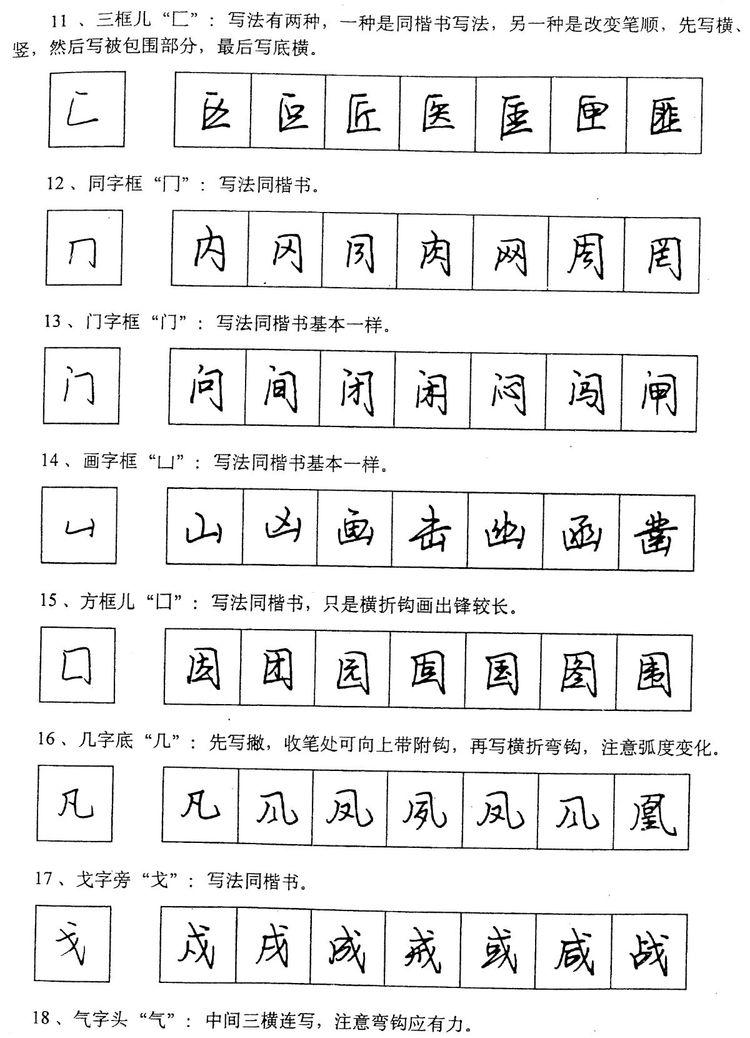 11、三框儿“匚”：写法有两种，一种是同楷书写法，另一种是改变笔顺，先写横、
竖，然后写被包围部分，最后写底横。
匚 区 叵 匠 医 匡 匣 匪
12、同字框“冂”：写法同楷书。
冂 内 冈 同 肉 网 周 罔
13、门字框“门”：写法同楷书基本一样。
门 问 间 闭 闲 闷 闯 闸
14、画字框“凵”：写法同楷书基本一样。
凵 山 凶 画 击 幽 函 凿
15、方框儿“囗”：写法同楷书，只是横折钩画出锋较长。
囗 因 团 园 固 国 图 围
16、几字底“几”：先写撇，收笔处可向上带附钩，再写横折弯钩，注意弧度变化。
凡 凡 风 凤 夙 凤 风 凰
17、戈字旁“戈”：写法同楷书。
戈 成 戌 成 戒 或 咸 战
18、气字头“气”：中间三横连写，注意弯钩应有力。